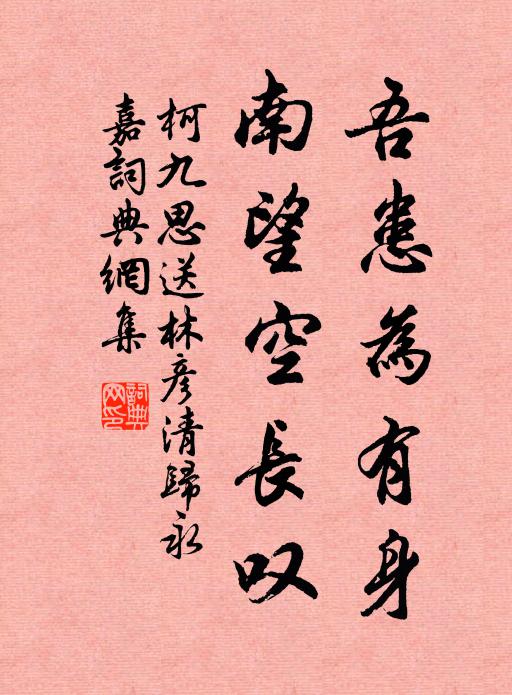 吾患為有身
南望空長叹
柯九思送林彦清歸永
嘉詞典網集
詞典網印